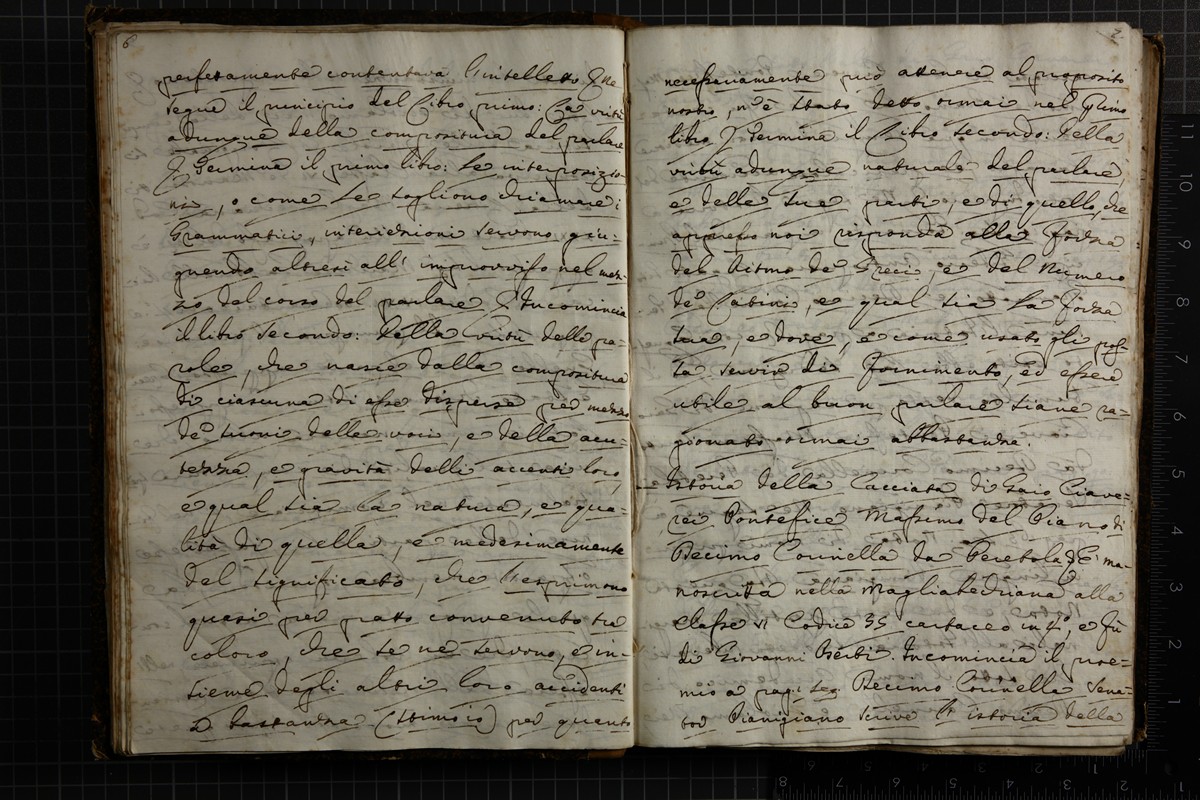 6
perfettamente contentava l'intelletto. Ne
segue il principio del Libro primo: La virtù
adunque della compositura del parlare
Termina il primo libro: Le interposizio-
ni, o come le sogliono chiamare i
Grammatici, interiezioni servono giu-
gnendo altresì all' improvviso nel mez-
zo del corso del parlare. Incomincia
il libro secondo: Della virtù delle pa-
role, che nasce dalla compositura
di ciascuna di esse dispersa per mezzo
de' suoni delle voci, e della acu-
tezza, e gravità delli accenti loro,
e qual sia la natura, e qua-
lità di quella, e medesimamente
del significato, che l'esprimono
quasi per patto convenuto tra
coloro, che se ne servono, e in-
sieme degli altri loro accidenti
a bastanza (stimo io) per quanto
7
necessariamente può attenere al proposito
nostro, n'è stato detto ormai nel Primo
libro. Termina il Libro secondo: Della
virtù adunque naturale del parlare,
e delle sue parti, e di quello, che
appresso noi risponda alla forza
del Ritmo de' Greci, e del Numero
de' Latini, e qual sia la forza
sua, e dove, e come usato gli pos-
sa servir di fornimento, ed essere
utile al buon parlare siane ra-
gionato ormai abbastanza.
Istoria della Cacciata di Gaio Ciave-
rei Pontefice Massimo del Piano di
Becimo Connella da Peretola. È ma-
noscritta nella Magliabechiana alla
Classe VI Codice 35 cartaceo in 4º, e fù
di Giovanni Berti. Incomincia il proe-
mio a pag. 1 seg. Becimo Connella Sena-
tor Pianigiano scrive l'istoria della